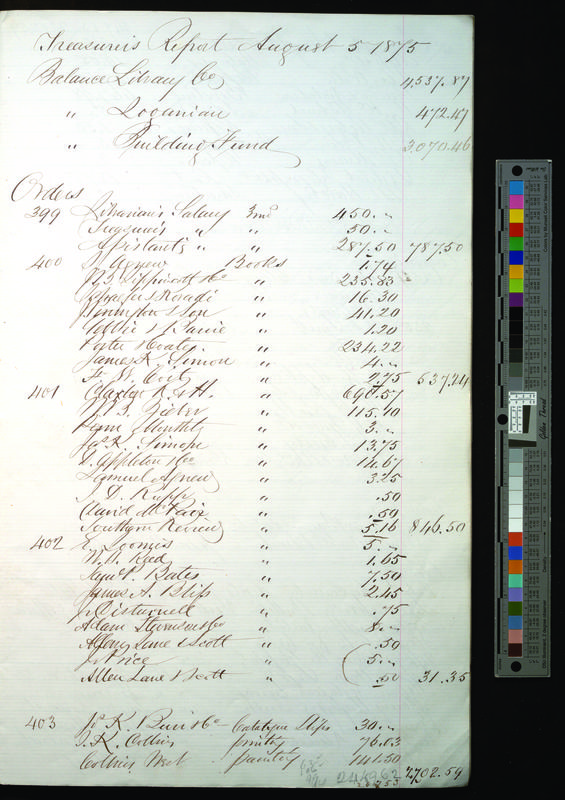 Treasurer's Report August 5 1875
Balance Library Co 4,537.87
" Loganian 472.47
" Building Fund 3,070.46
Orders
399 Librarian's Salary 3 mos 450. "
" " 50. "
Assistants " " 287.50 787.50
400 Agnew Books 1.74
J. B. Lippincott & Co " 235.83
" 16.30
Pennington & Son " 41.20
" 1.20
Porter & Coates " 234.22
James K. Simon " 4. "
F. W. " 2.75 537.24
401 Claxton R & H. " 690.57
" 115.10
Penn Monthly " 3. "
Jas K. Simon " 13.75
D. Appleton & Co " 14.67
Samuel Agnew " 3.25
I. D. Rupp " .50
David McKaig " .50
Southern Review " 5.16 846.50
402 E. Loomis " 5. "
W. B. Reed " 1.65
Saml P. Bates " 7.50
James A. Bliss " 2.45
J. Disturnell " .75
Adam & Co " 8. "
Allen Lane & Scott " .50
Price " 5. "
Allen Lane & Scott " .50 31.35
403 Catalogue Slips 30. "
T. K. Collins printing 76.03
Collins West painting 141.50
2702.59